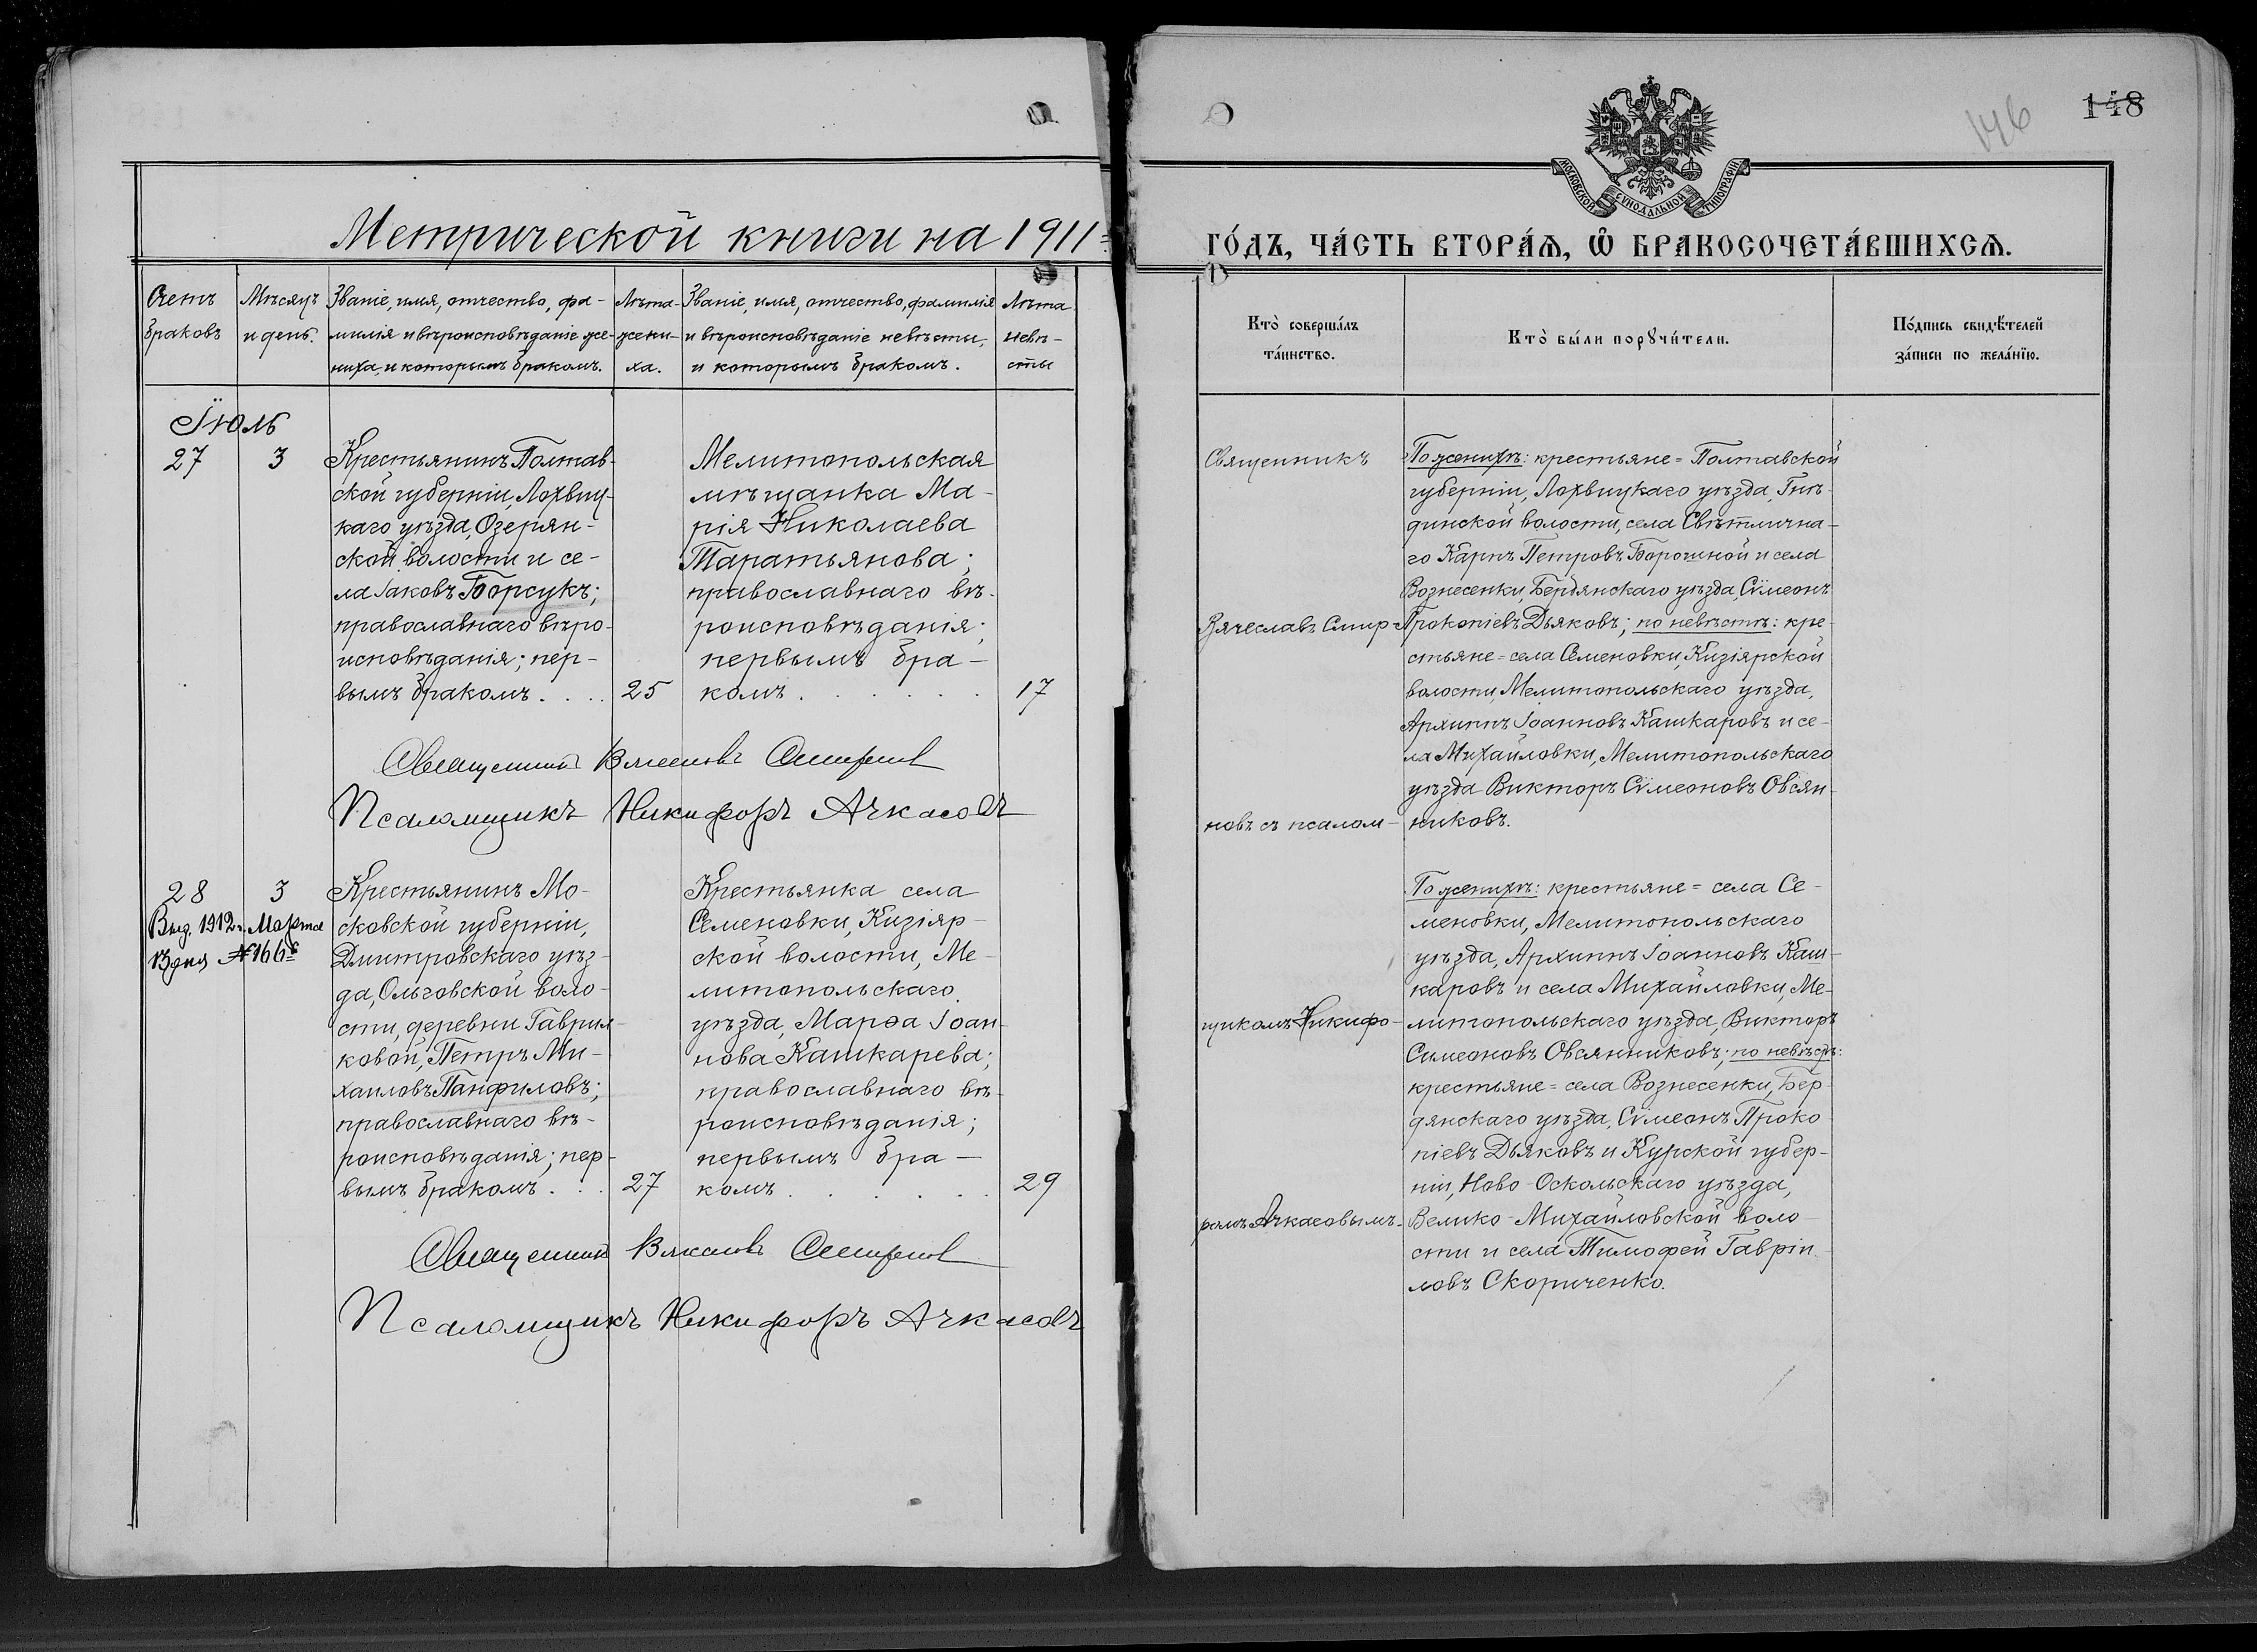 148
146
МОСКОВСКОЙ СУНОДАЛЬНОЙ ТИПОГРАФІИ
Метрической книги на 1911=
го́дъ, ча́сть втора́ѧ, ѽ бракосочета́вшихсѧ.
Счетъ браковъ
Мѣсяцъ и день.
Званіе, имя, отчество, фа-
милія и вѣроисповѣданіе же-
ниха, и которымъ бракомъ.
Лѣта
жени-
ха.
Званіе, имя, отчество, фамилія
и вѣроисповѣданіе невѣсты,
и которымъ бракомъ.
Лѣта
невѣ-
сты
Кто̀ соверша́лъ
та́инство.
Кто̀ бы́ли порꙋчи́тели.
По́дпись свидѣ́телей
за́писи по жела́нїю.
Іюль
27
3
Крестьянинъ Полтав-
ской губерніи, Лохвиц-
каго уѣзда, Озерян-
ской волости и се-
ла Іаковъ Борсукъ;
православнаго вѣро-
исповѣданія; пер-
вымъ бракомъ. . . .
25
Мелитопольская
мѣщанка Ма-
рія Николаева
Таратьянова;
православнаго вѣ-
роисповѣданія;
первымъ бра-
комъ. . . . . .
17
Священникъ
Вячеславъ Смир-
новъ съ псалом-
щикомъ Никифо-
ромъ Ачкасовымъ.
По женихѣ: крестьяне = Полтавской
губерніи, Лохвицкаго уѣзда, Гнѣ-
динской волости, села Свѣтлична-
го Карпъ Петровъ Борошной и села
Вознесенки, Бердянскаго уѣзда, Сѵмеонъ
Прокопіевъ Дьяковъ; по невѣстѣ: кре-
стьяне = села Семеновки, Кизіярской
волости, Мелитопольскаго уѣзда,
Архиппъ Іоанновъ Кашкаровъ и се-
ла Михайловки, Мелитопольскаго
уѣзда Викторъ Сѵмеоновъ Овсян-
никовъ.
Священникъ Вячеславъ Смирнов
Псаломщикъ Никифоръ Ачкасовъ
28
3
Выд. 1912 г. Марта
13 дня № 166
Крестьянинъ Мо-
сковской губерніи,
Дмитровскаго уѣз-
да, Ольговской воло-
сти, деревни Гаврил-
ковой, Петръ Ми-
хаиловъ Панфиловъ;
православнаго вѣ-
роисповѣданія; пер-
вымъ бракомъ. . .
27
Крестьянка села
Семеновки, Кизіяр-
ской волости, Ме-
литопольскаго
уѣзда, Марѳа Іоан-
нова Кашкарева;
православнаго вѣ-
роисповѣданія;
первымъ бра-
комъ. . . . . .
29
По женихѣ: крестьяне = села Се-
меновки, Мелитопольскаго
уѣзда, Архиппъ Іоанновъ Каш-
каровъ и села Михайловки, Ме-
литопольскаго уѣзда, Викторъ
Симеоновъ Овсянниковъ; по невѣстѣ:
крестьяне = села Вознесенки, Бер-
дянскаго уѣзда, Сѵмеонъ Проко-
піевъ Дьяковъ и Курской губер-
ніи, Ново-Оскольскаго уѣзда,
Велико-Михайловской воло-
сти и села Тимофей Гавріи-
ловъ Скориченко.
Священникъ Вячеславъ Смирнов
Псаломщикъ Никифоръ Ачкасовъ